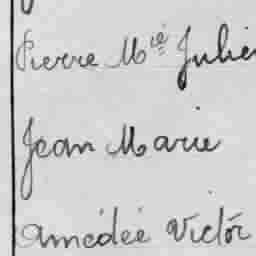 Pierre Mie Julien
Jean Marie
Amédée Victor